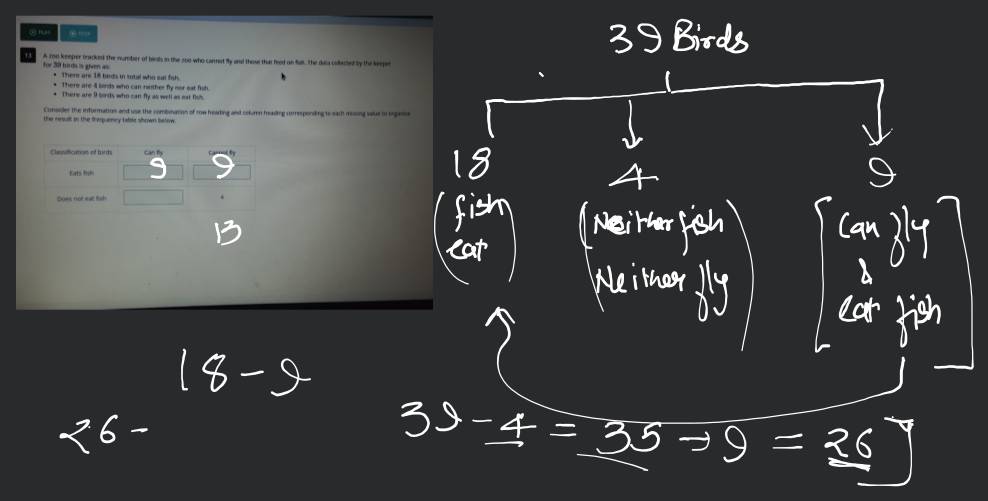 13
A zoo keeper tracked the number of birds in the zoo who cannot fly and those that feed on fish. The data collected by the keeper
for 39 birds is given as:
• There are 18 birds in total who eat fish.
• There are 4 birds who can neither fly nor eat fish.
• There are 9 birds who can fly as well as eat fish.
Consider the information and use the combination of row heading and column heading corresponding to each missing value to organize
the result in the frequency table shown below.
Classification of birds Can fly Cannot fly
Eats fish 9 9
Does not eat fish 4
13
39 Birds
18 4 9
(fish eat) (Neither fish Neither fly) [Can fly & eat fish]
18-9
26-
39-4 = 35-9 = 26